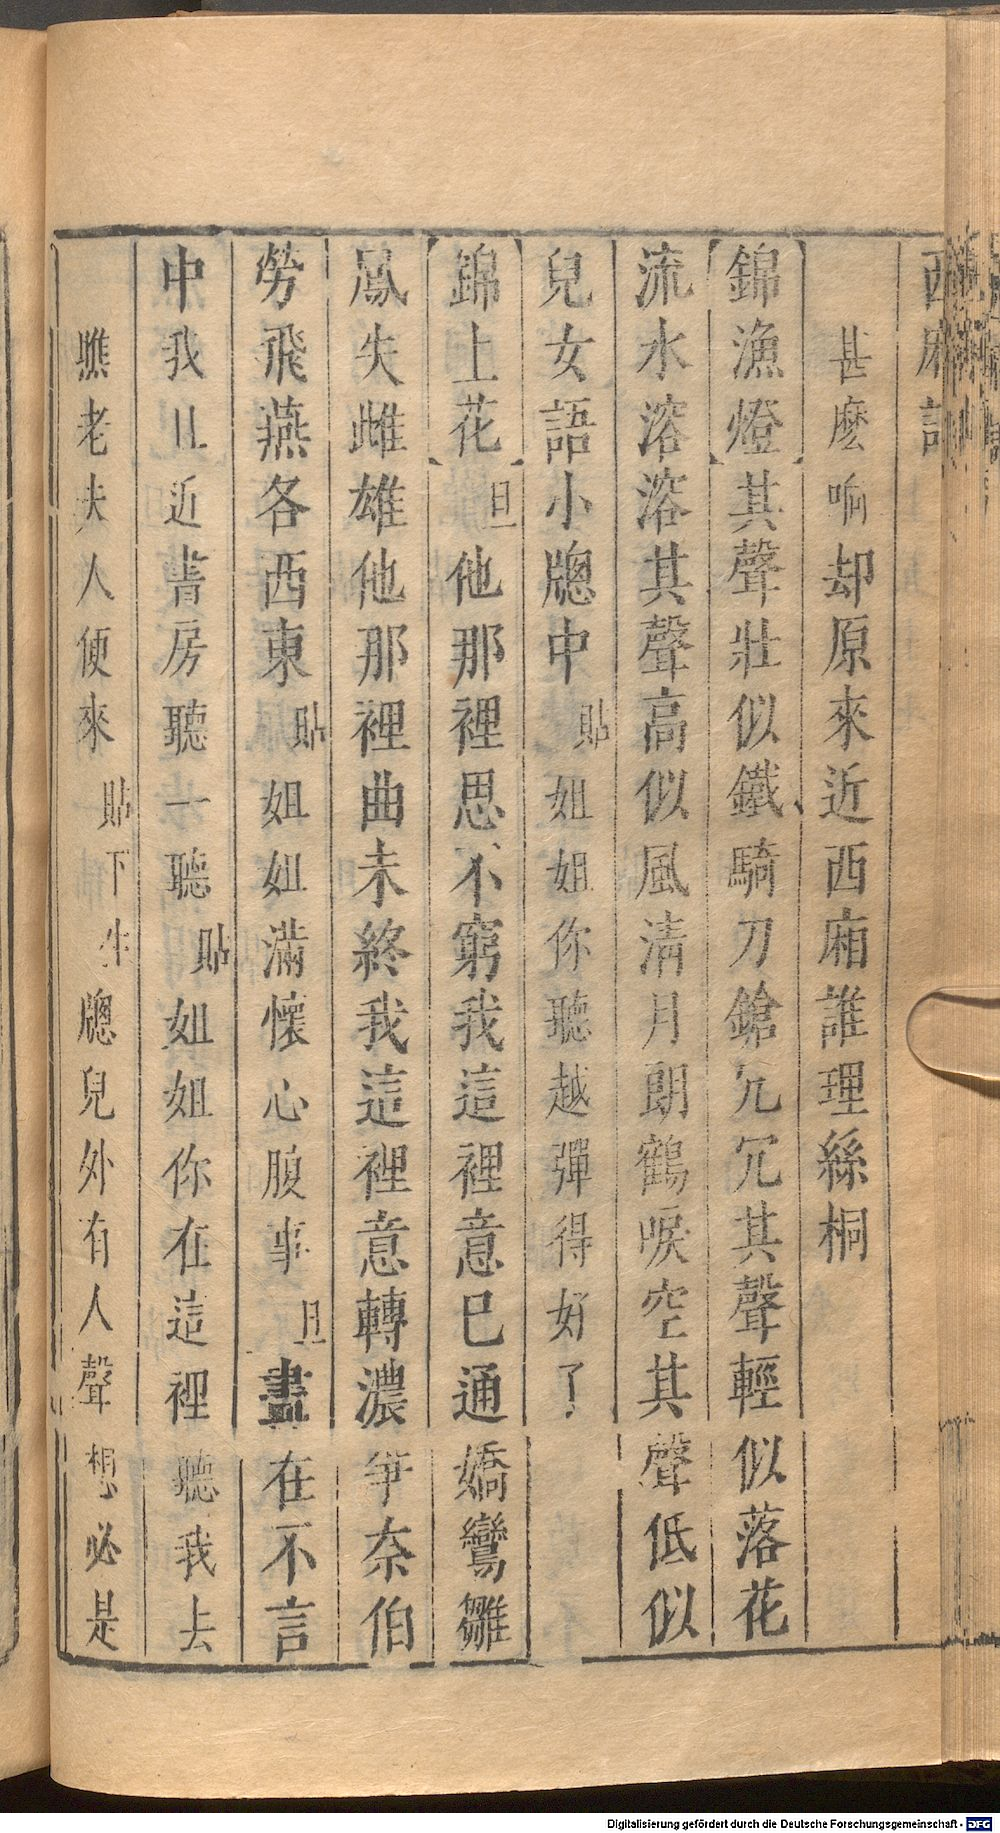 西廂記
甚麽响却原來近西廂誰理絲桐
錦漁燈其聲壯似鐵騎刀鎗冗冗其聲輕似落花
流水溶溶其聲高似風清月朗鶴唳空其聲低似
兒女語小牕中貼姐姐你聽越彈得好了
錦上花旦他那裡思不窮我這裡意已通嬌鸞雛
鳳失雌雄他那裡曲未終我這裡意轉濃爭奈伯
勞飛燕各西東貼姐姐滿懷心腹事旦盡在不言
中我且近書房聽一聽貼姐姐你在這裡聽我去
瞧老夫人便來貼下生牕兒外有人聲想必是
Digitalisierung gefördert durch die Deutsche Forschungsgemeinschaft - DFG